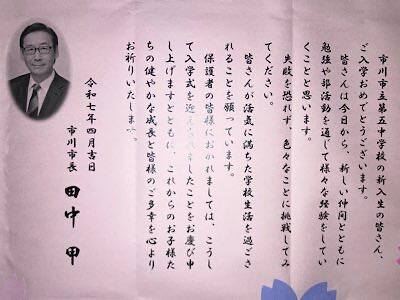 市川市立第五中学校の新入生の皆さん、
ご入学おめでとうございます。
皆さんは今日から、新しい仲間とともに
勉強や部活動を通じて様々な経験をしてい
くことと思います。
失敗を恐れず、色々なことに挑戦してみ
てください。
皆さんが活気に満ちた学校生活を過ごさ
れることを願っています。
保護者の皆様におかれましては、こうし
て入学式を迎えられましたことをお慶び申
し上げますとともに、これからのお子様た
ちの健やかな成長と皆様のご多幸を心より
お祈りいたします。
令和七年四月吉日
市川市長 田中 甲